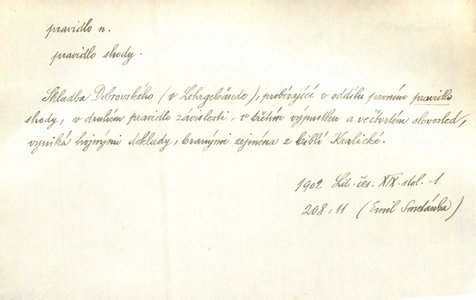 pravidlo n.
pravidlo shody.
Skladba Dobrovského (v Lehrgebäude), probírající v oddílu prvním pravidlo
shody, v druhém pravidlo závislosti, v třetím výpustku a ve čtvrtém slovosled,
vyniká hojnými doklady, branými zejména z biblí Kralické.
1902 Lit. čes. XIX. stol. -1
208, 11 (Emil Smetánka)